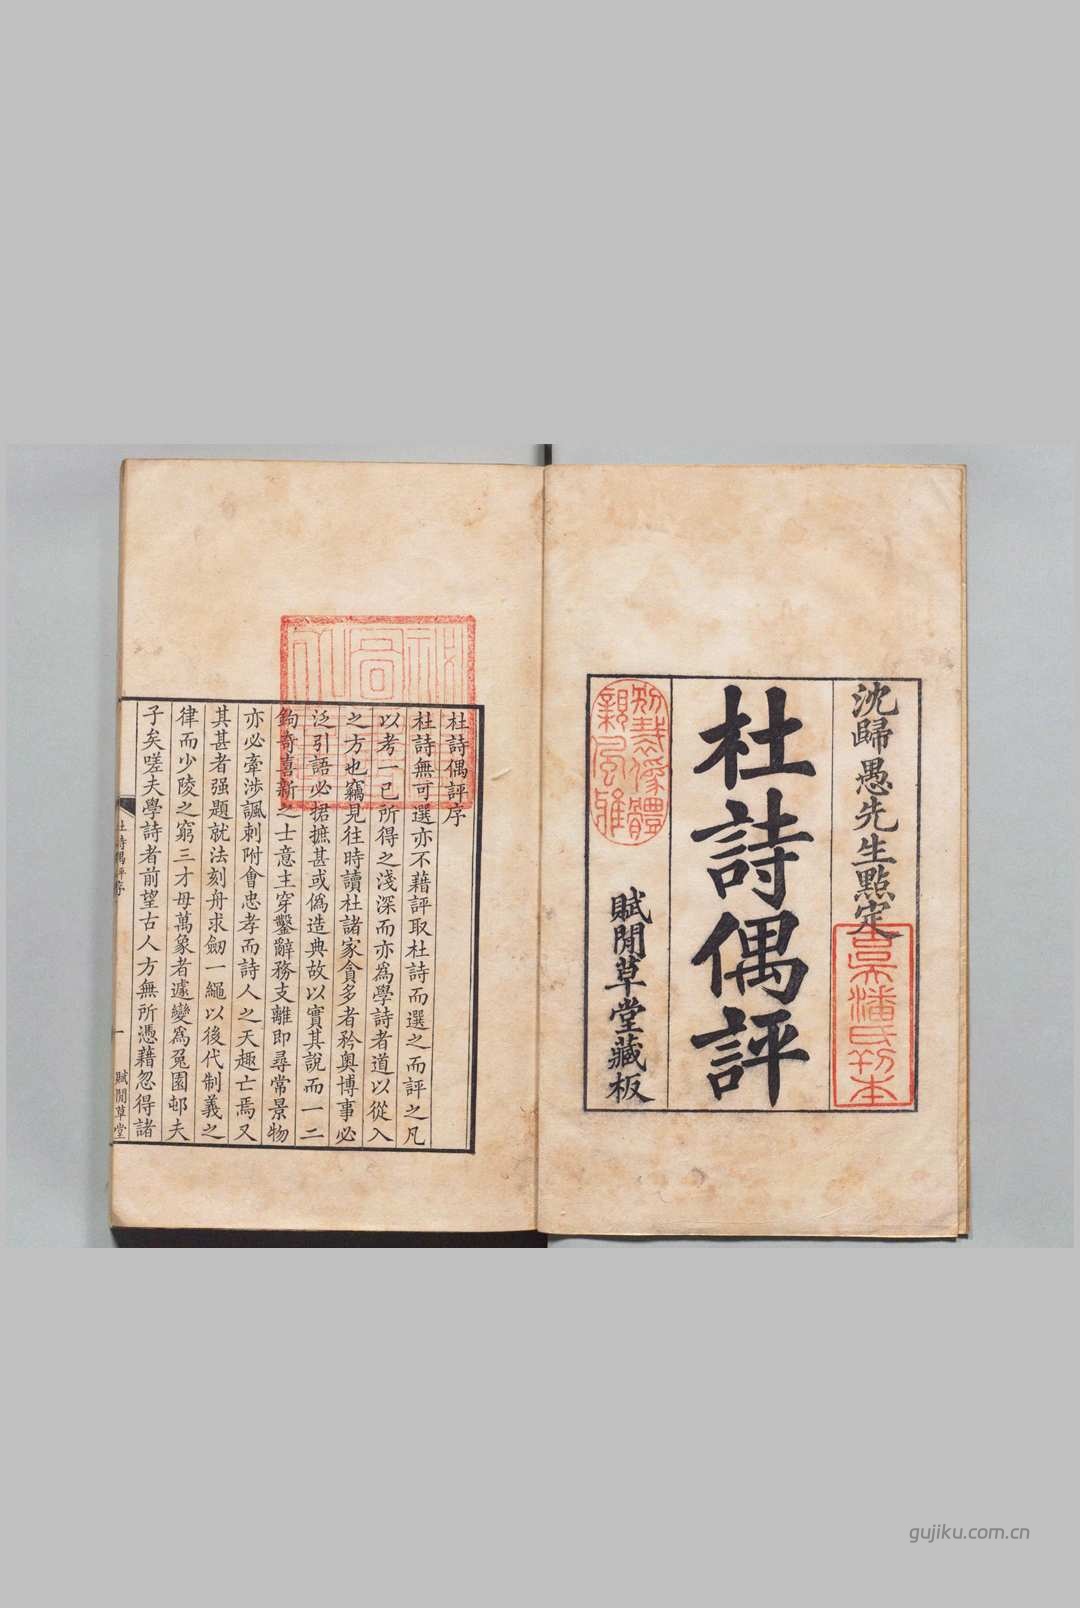 沈歸愚先生點定
杜詩偶評
賦閒草堂藏板
別裁偽體
親風雅
古吳潘氏刊本
杜詩偶評序
杜詩無可選亦不藉評取杜詩而選之而評之凡
以考一已所得之淺深而亦為學詩者道以從入
之方也竊見往時讀杜諸家貪多者矜奧博事必
泛引語必捃摭甚或偽造典故以實其說而一二
鉤奇喜新之士意主穿鑿辭務支離即尋常景物
亦必牽涉諷刺附會忠孝而詩人之天趣亡焉又
其甚者强題就法刻舟求劒一繩以後代制義之
律而少陵之窮三才母萬象者遽變為兔園邨夫
子矣嗟夫學詩者前望古人方無所憑藉忽得諸
杜詩偶評序
一
賦閒草堂
gujiku.com.cn